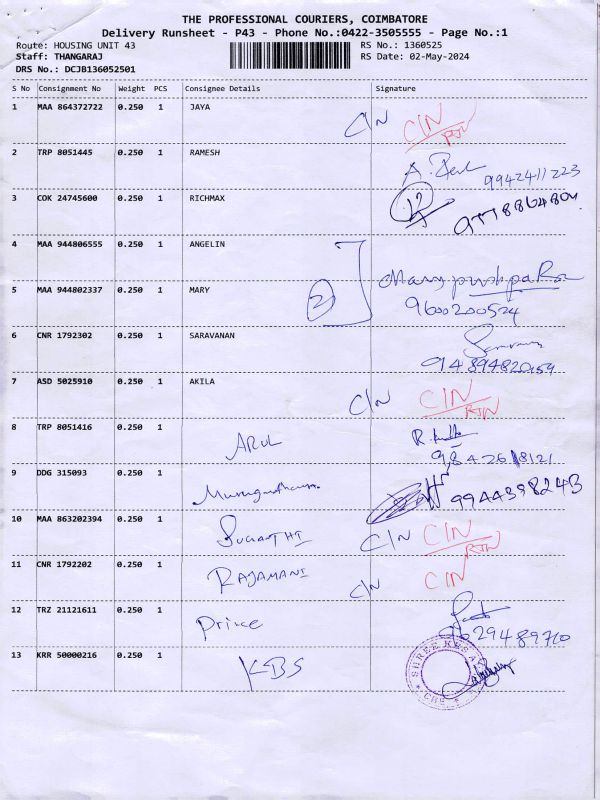 THE PROFESSIONAL COURIERS, COIMBATORE
Delivery Runsheet - P43 - Phone No.:0422-3505555 - Page No.:1
Route: HOUSING UNIT 43 RS No.: 1360525
Staff: THANGARAJ RS Date: 02-May-2024
DRS No.: DCJB136052501
S No Consignment No Weight PCS Consignee Details Signature
1 MAA 864372722 0.250 1 JAYA C/N C/N
2 TRP 8051445 0.250 1 RAMESH
9942411223
3 COK 24745600 0.250 1 RICHMAX
4 MAA 944806555 0.250 1 ANGELIN
5 MAA 944802337 0.250 1 MARY 2 Mary pushpa
9600200524
6 CNR 1792302 0.250 1 SARAVANAN
7 ASD 5025910 0.250 1 AKILA C/N C/N
RTN
8 TRP 8051416 0.250 1 ARUL
9 DDG 315093 0.250 1 9944398243
10 MAA 863202394 0.250 1 SUGANTHI C/N C/N
RTN
11 CNR 1792202 0.250 1 RAJAMANI C/N C/N
12 TRZ 21121611 0.250 1 Prince
9629489710
13 KRR 50000216 0.250 1 KBS SHREE KBS
CBE